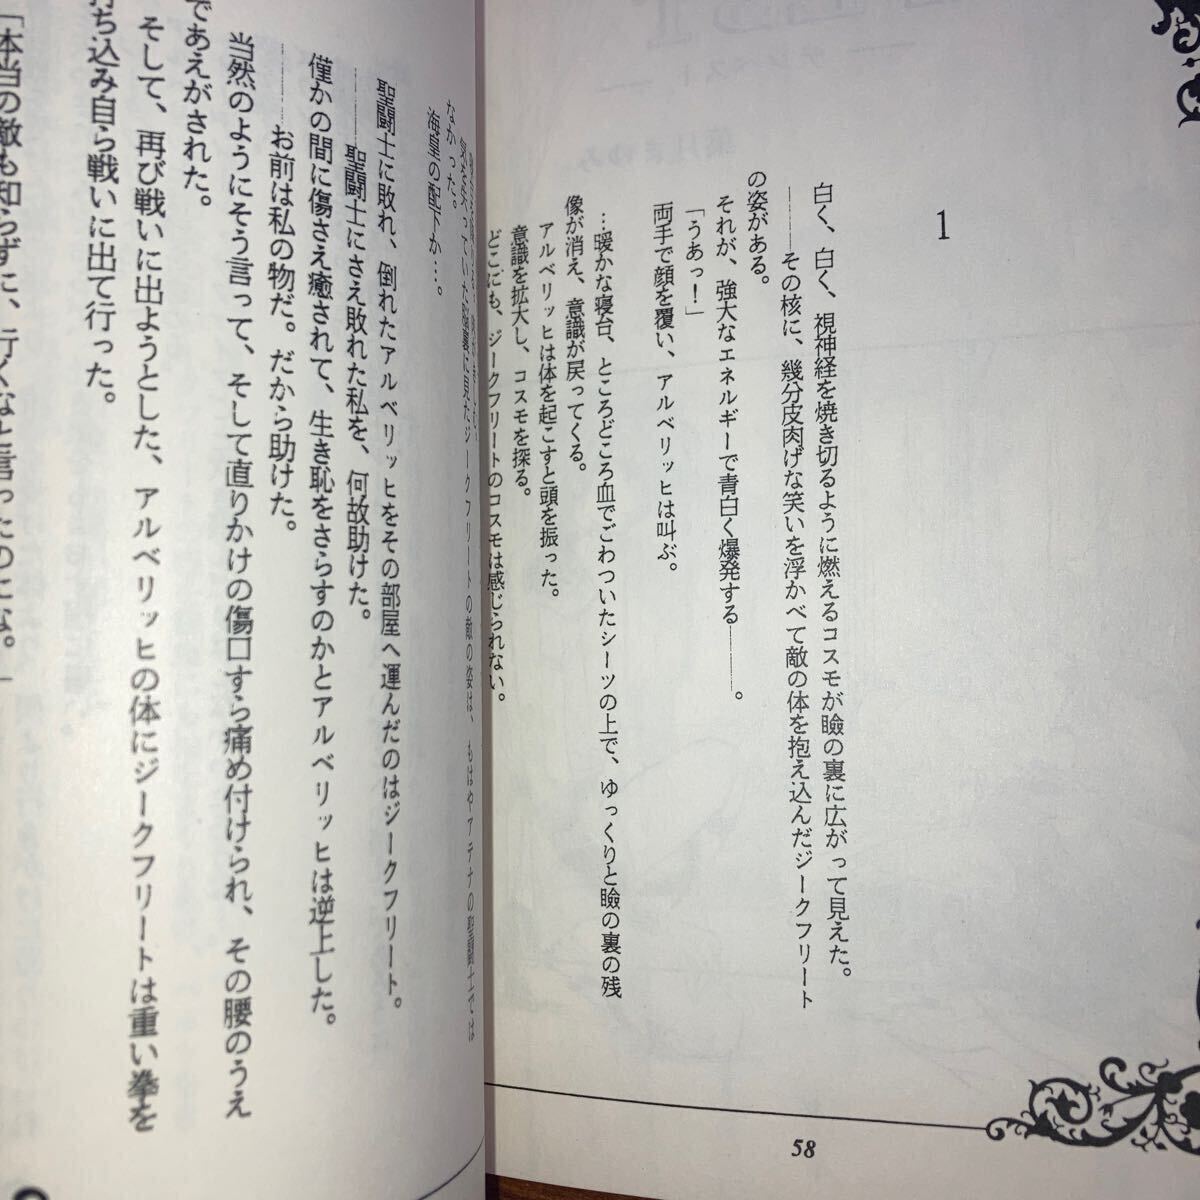 1
白く、白く、視神経を焼き切るように燃えるコスモが瞼の裏に広がって見えた。
――その核に、幾分皮肉げな笑いを浮かべて敵の体を抱え込んだジークフリート
の姿がある。
それが、強大なエネルギーで青白く爆発する――。
「うあっ！」
両手で顔を覆い、アルベリッヒは叫ぶ。
…暖かな寝台、ところどころ血でごわついたシーツの上で、ゆっくりと瞼の裏の残
像が消え、意識が戻ってくる。
アルベリッヒは体を起こすと頭を振った。
意識を拡大し、コスモを探る。
どこにも、ジークフリートのコスモは感じられない。
気を失っていた脳裏に見たジークフリートの敵の姿は、もはやアテナの聖闘士では
なかった。
海皇の配下か…。
聖闘士に敗れ、倒れたアルベリッヒをその部屋へ運んだのはジークフリート。
――聖闘士にさえ敗れた私を、何故助けた。
僅かの間に傷さえ癒されて、生き恥をさらすのかとアルベリッヒは逆上した。
――お前は私の物だ。だから助けた。
当然のようにそう言って、そして直りかけの傷口すら痛め付けられ、その腰のうえ
であえがされた。
そして、再び戦いに出ようとした、アルベリッヒの体にジークフリートは重い拳を
打ち込み自ら戦いに出て行った。
「本当の敵も知らずに、行くなと言ったのにな。」
58